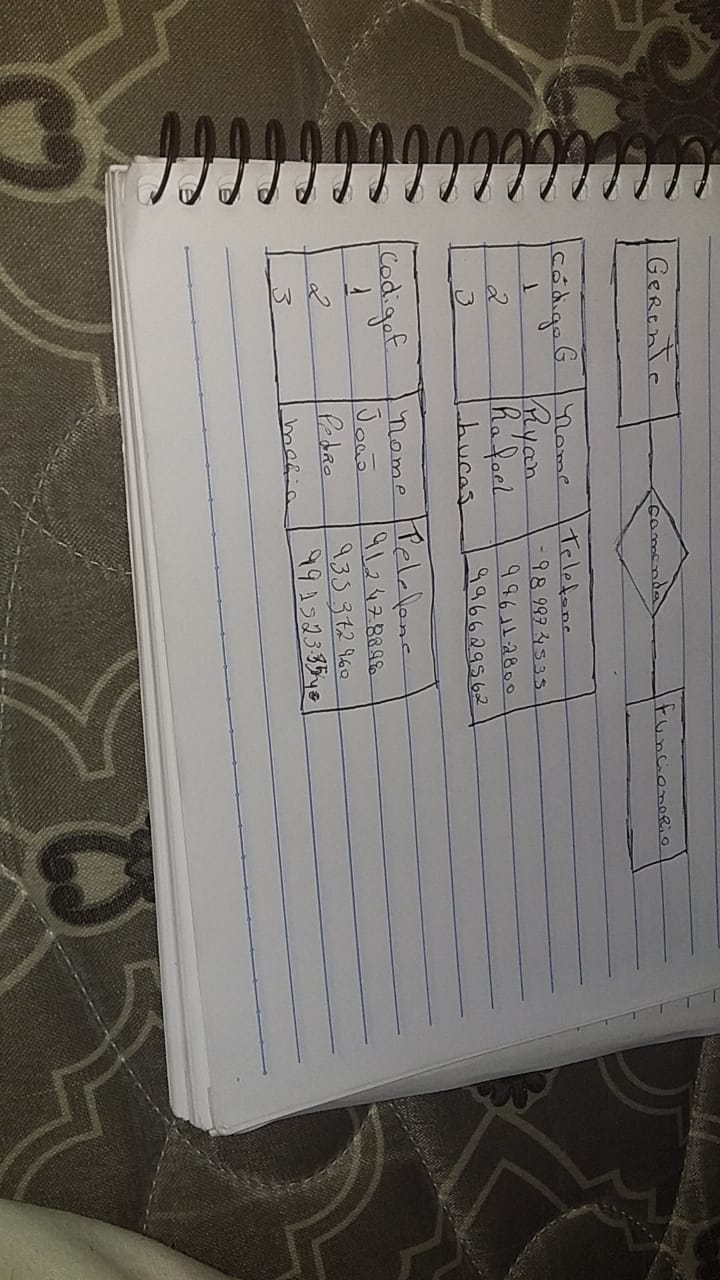 Gerente comanda funcionario
CódigoG nome Telefone
1 Ryan
2 Rafael 99611-2800
3 Lucas 996629562
Codigof nome Telefone
1 João 912478898
2 Pedro 935372960
3 maria